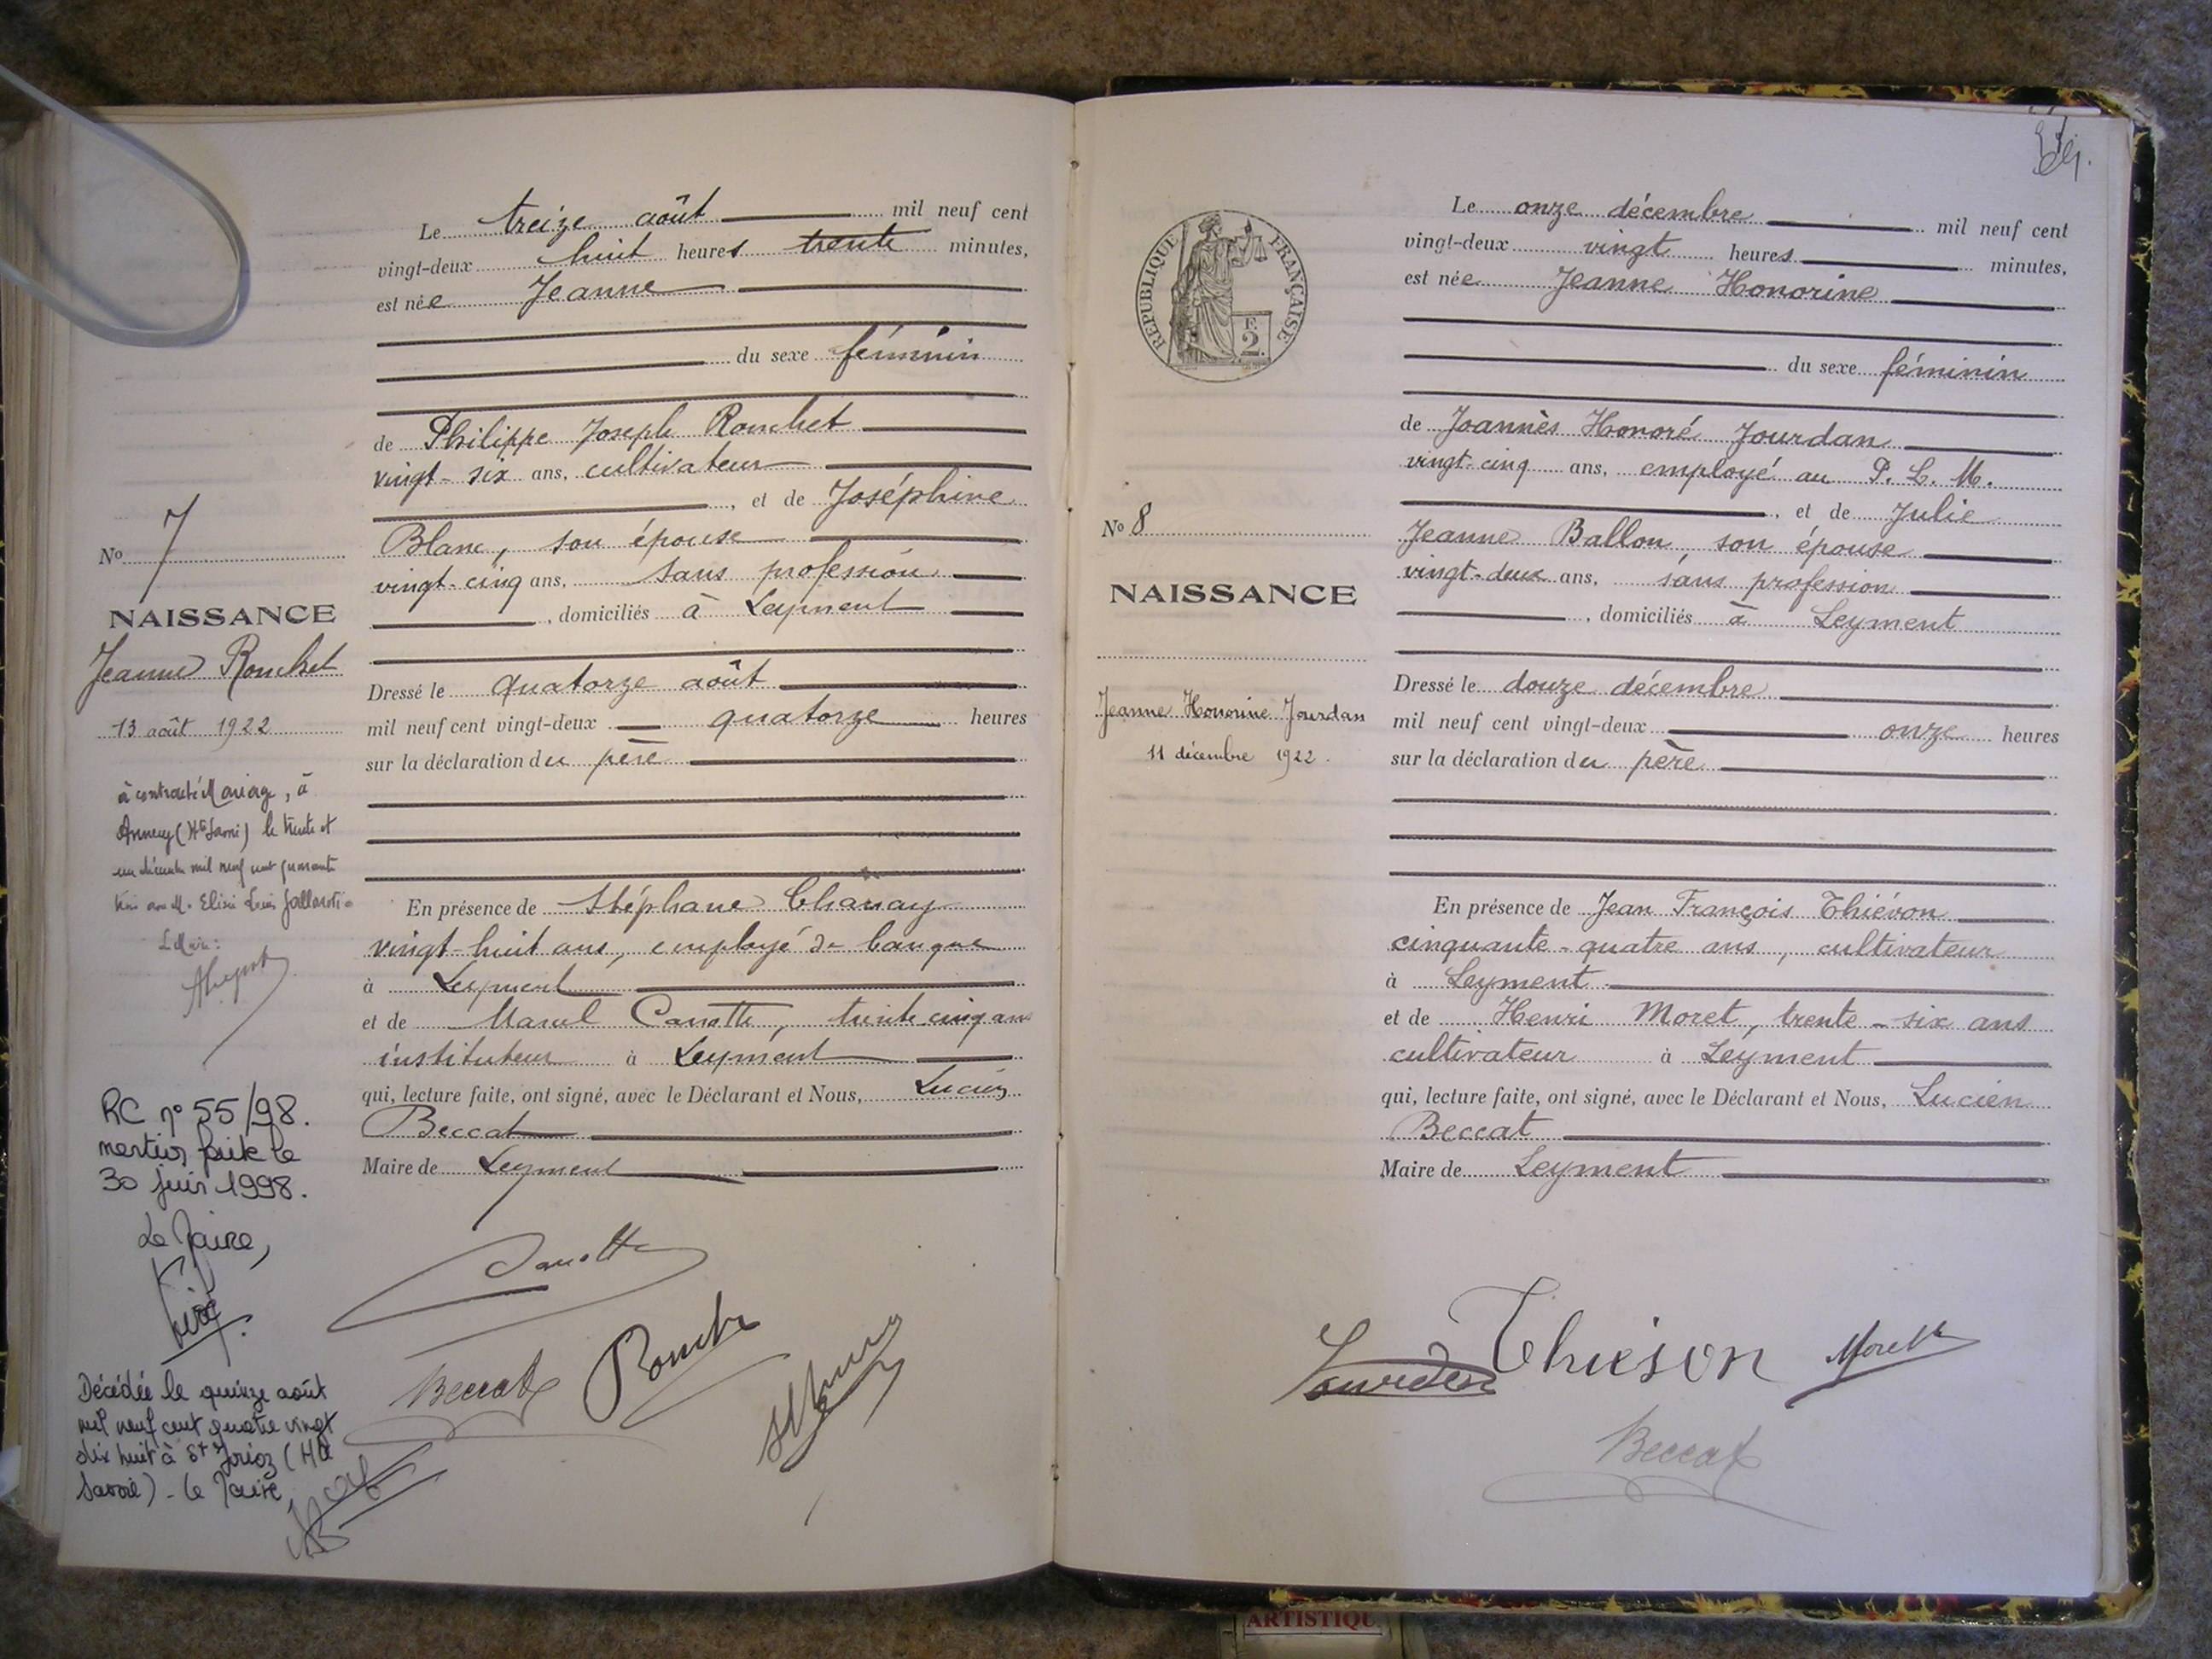 Le treize août mil neuf cent
vingt-deux huit heures trente minutes,
est née Jeanne
du sexe féminin
de Philippe Joseph Ronchet
vingt-six ans, cultivateur
, et de Joséphine
Blanc, son épouse
vingt-cinq ans, sans profession
, domiciliés à Leyment
Dressé le quatorze août
mil neuf cent vingt-deux quatorze heures
sur la déclaration du père
En présence de Stéphane Chanay
vingt-huit ans, employé de banque
à Leyment
et de Marcel Canotte, trente cinq ans
instituteur à Leyment
qui, lecture faite, ont signé, avec le Déclarant et Nous, Lucien
Beccat
Maire de Leyment
Canotte
Beccat Ronchet
No 7
NAISSANCE
Jeanne Ronchet
13 août 1922
à contracté Mariage, à
Annecy (Hte Savoie) le trente et
un décembre mil neuf cent quarante
trois avec M. Elisée Louis
Le Maire:
RC n° 55/98.
mention faite le
30 juin 1998.
Le Maire,
Décédée le quinze août
mil neuf cent quatre vingt
dix huit à St Jorioz (Hte
Savoie) - Le Maire
REPUBLIQUE FRANÇAISE
F.
2.
Le onze décembre mil neuf cent
vingt-deux vingt heures minutes,
est née Jeanne Honorine
du sexe féminin
de Joannès Honoré Jourdan
vingt-cinq ans, employé au P. L. M.
, et de Julie
Jeanne Ballon, son épouse
vingt-deux ans, sans profession
, domiciliés à Leyment
Dressé le douze décembre
mil neuf cent vingt-deux onze heures
sur la déclaration du père
En présence de Jean François Thiévon
cinquante-quatre ans, cultivateur
à Leyment
et de Henri Moret, trente-six ans
cultivateur à Leyment
qui, lecture faite, ont signé, avec le Déclarant et Nous, Lucien
Beccat
Maire de Leyment
Jourdan Thiévon Moret
Beccat
No 8
NAISSANCE
Jeanne Honorine Jourdan
11 décembre 1922.
ARTISTIQU